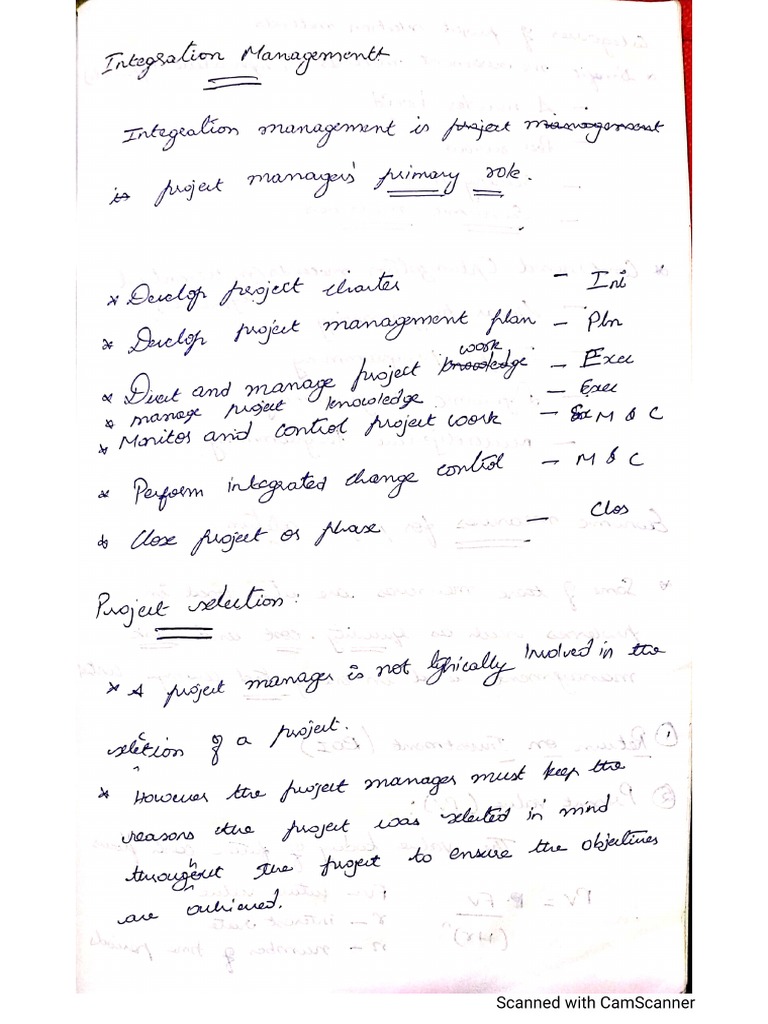 Integration Managementt
Integration management is project management
is project manager's primary role.
* Develop project charter – Ini
* Develop project management plan – Pln
* Direct and manage project knowledge work – Exec
* manage project knowledge – Exec
* Monitor and control project work – Ex M & C
* Perform integrated change control – M & C
* Close project or phase – Clos
Project selection:
* A project manager is not typically Involved in the
selection of a project.
* However the project manager must keep the
reasons the project was selected in mind
throughout the project to ensure the objectives
are achieved.
Scanned with CamScanner